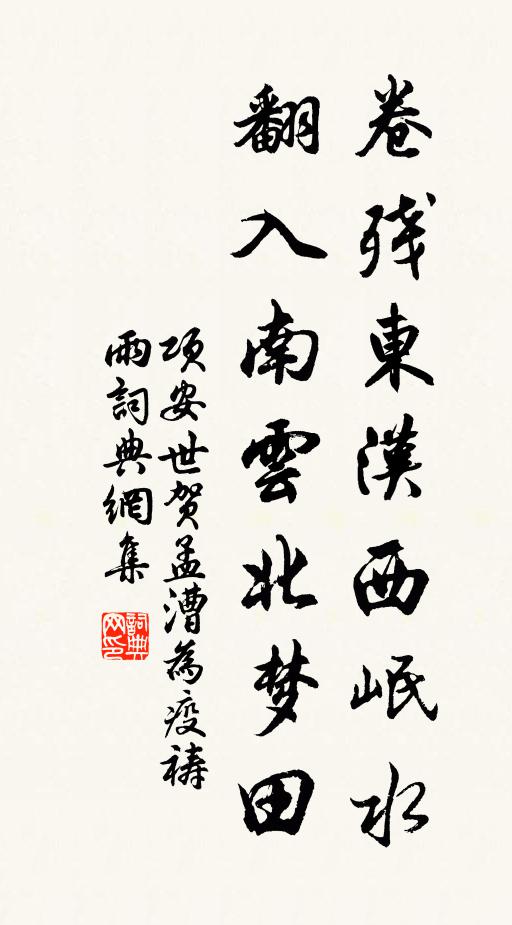 卷残東漢西岷水
翻入南雲北梦田
项安世贺孟漕為疫祷
雨詞典網集
詞典网印